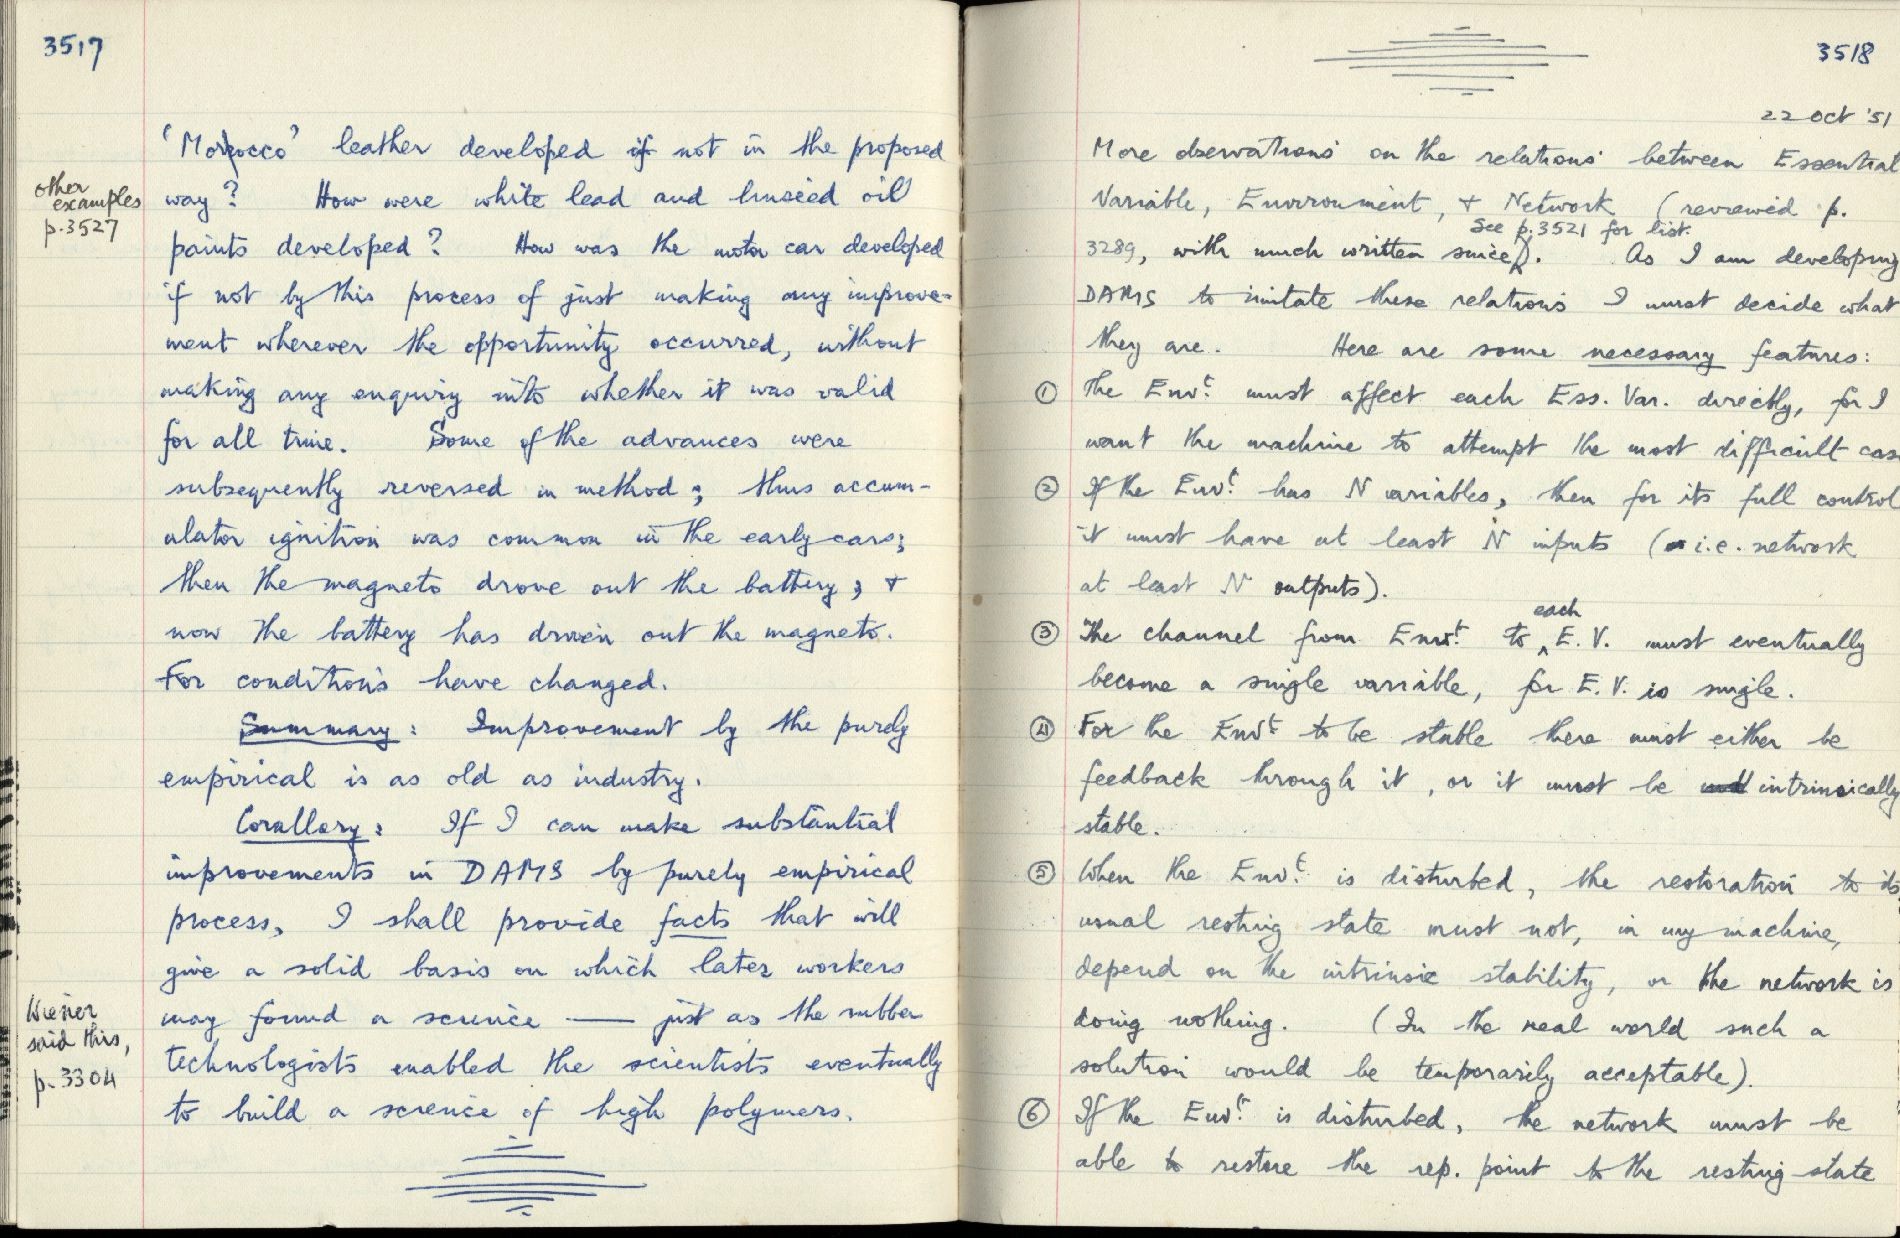 3517
'Morocco' leather developed if not in the proposed
other
examples
p.3527
way? How were white lead and linseed oil
paints developed? How was the motor car developed
if not by this process of just making any improve-
ment wherever the opportunity occurred, without
making any enquiry into whether it was valid
for all time. Some of the advances were
subsequently reversed in method; thus accum-
ulator ignition was common in the early cars;
then the magneto drove out the battery; +
now the battery has driven out the magneto.
For conditions have changed.
Summary: Improvement by the purely
empirical is as old as industry.
Corollary: If I can make substantial
improvements in DAMS by purely empirical
process, I shall provide facts that will
give a solid basis on which later workers
may found a science — just as the rubber
technologists enabled the scientists eventually
to build a science of high polymers.
Wiener
said this,
p.3304
3518
22 Oct '51
More observations on the relations between Essential
Variable, Environment, + Network (reviewed p.
See p.3521 for list.
3289, with much written since). As I am developing
DAMS to imitate these relations I must decide what
they are. Here are some necessary features:
① The Envt. must affect each Ess. Var. directly, for I
want the machine to attempt the most difficult case
② If the Envt. has N variables, then for its full control
it must have at least N inputs (i.e. network
at least N outputs).
③ The channel from Envt. to each E.V. must eventually
become a single variable, for E.V. is single.
④ For the Envt to be stable there must either be
feedback through it, or it must be intrinsically
stable.
⑤ When the Envt. is disturbed, the restoration to its
usual resting state must not, in my machine,
depend on the intrinsic stability, or the network is
doing nothing. (In the real world such a
solution would be temporarily acceptable).
⑥ If the Envt. is disturbed, the network must be
able to restore the rep. point to the resting state